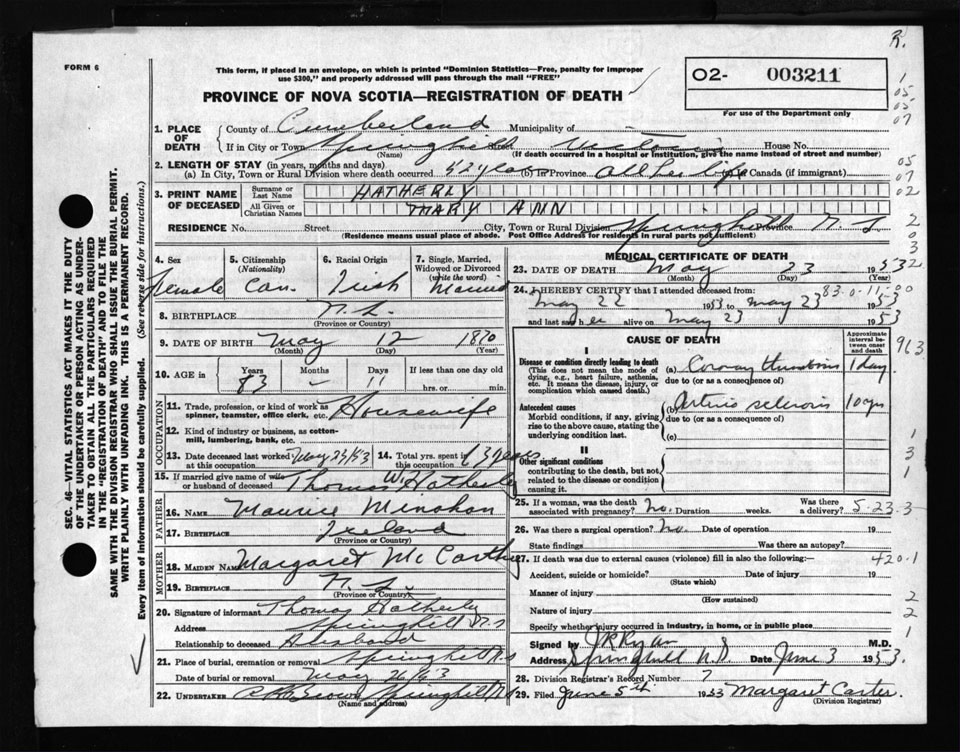 R.
FORM 6
This form, if placed in an envelope, on which is printed "Dominion Statistics—Free, penalty for improper
use $300," and properly addressed will pass through the mail "FREE"
O2- 003211
For use of the Department only
PROVINCE OF NOVA SCOTIA—REGISTRATION OF DEATH
1. PLACE OF DEATH { County of Cumberland Municipality of
If in City or Town Springhill Street Victoria House No.
(Name) (If death occurred in a hospital or institution, give the name instead of street and number)
2. LENGTH OF STAY (in years, months and days)
(a) In City, Town or Rural Division where death occurred 52 years (b) in Province All her life (c) in Canada (if immigrant)
3. PRINT NAME OF DECEASED { Surname or Last Name HATHERLY
All Given or Christian Names MARY ANN
RESIDENCE No. Street City, Town or Rural Division Springhill Province N.S.
(Residence means usual place of abode. Post Office Address for residents in rural parts not sufficient)
4. Sex Female
5. Citizenship (Nationality) Can.
6. Racial Origin Irish
7. Single, Married, Widowed or Divorced (write the word) Married
8. BIRTHPLACE N.S.
(Province or Country)
9. DATE OF BIRTH May 12 1870
(Month) (Day) (Year)
10. AGE in Years 83 Months - Days 11 If less than one day old hrs. or min.
OCCUPATION
11. Trade, profession, or kind of work as spinner, teamster, office clerk, etc. Housewife
12. Kind of industry or business, as cotton-mill, lumbering, bank, etc.
13. Date deceased last worked at this occupation May 23/53
14. Total yrs. spent in this occupation 63 years
15. If married give name of wife or husband of deceased Thomas W. Hatherly
FATHER
16. NAME Maurice Minahan
17. BIRTHPLACE Ireland
(Province or Country)
MOTHER
18. MAIDEN NAME Margaret McCarthy
19. BIRTHPLACE N.S.
(Province or Country)
20. Signature of informant Thomas Hatherly
Address Springhill N.S
Relationship to deceased Husband
21. Place of burial, cremation or removal Springhill N.S
Date of burial or removal May 26/53
22. UNDERTAKER Brown Springhill N.S
(Name and address)
MEDICAL CERTIFICATE OF DEATH
23. DATE OF DEATH May 23 1953
(Month) (Day)
83-0-11-00
24. I HEREBY CERTIFY that I attended deceased from:
May 22 1953 to May 23 1953
and last saw her alive on May 23 1953
CAUSE OF DEATH
Approximate interval between onset and death
I
Disease or condition directly leading to death
(This does not mean the mode of dying, e.g., heart failure, asthenia, etc. It means the disease, injury, or complication which caused death.)
(a) Coronary thrombosis 1 day
due to (or as a consequence of)
Antecedent causes
Morbid conditions, if any, giving rise to the above cause, stating the underlying condition last.
(b) Arterio sclerosis 10 yrs
due to (or as a consequence of)
(c)
II
Other significant conditions
contributing to the death, but not related to the disease or condition causing it.
25. If a woman, was the death associated with pregnancy? No. Duration weeks. Was there a delivery? 5-23-3
26. Was there a surgical operation? No. Date of operation 19
State findings Was there an autopsy?
27. If death was due to external causes (violence) fill in also the following: 420.1
Accident, suicide or homicide? Date of injury 19
(State which)
Manner of injury
(How sustained)
Nature of injury
Specify whether injury occurred in industry, in home, or in public place
Signed by J R Ryan M.D.
Address Springhill N.S. Date June 3 1953.
28. Division Registrar's Record Number 7
29. Filed June 5th 1953 Margaret Carter.
(Division Registrar)
SEC. 46—VITAL STATISTICS ACT MAKES IT THE DUTY
OF THE UNDERTAKER OR PERSON ACTING AS UNDER-
TAKER TO OBTAIN ALL THE PARTICULARS REQUIRED
IN THE "REGISTRATION OF DEATH" AND TO FILE THE
SAME WITH THE DIVISION REGISTRAR WHO SHALL ISSUE THE BURIAL PERMIT.
WRITE PLAINLY WITH UNFADING INK. THIS IS A PERMANENT RECORD.
Every item of information should be carefully supplied. (See reverse side for instructions.)
1
05
05
07
05
07
02
2
0
3
32
963
1
3
1
2
2
1